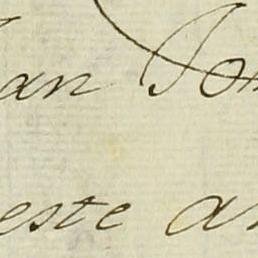 an Jo
este a